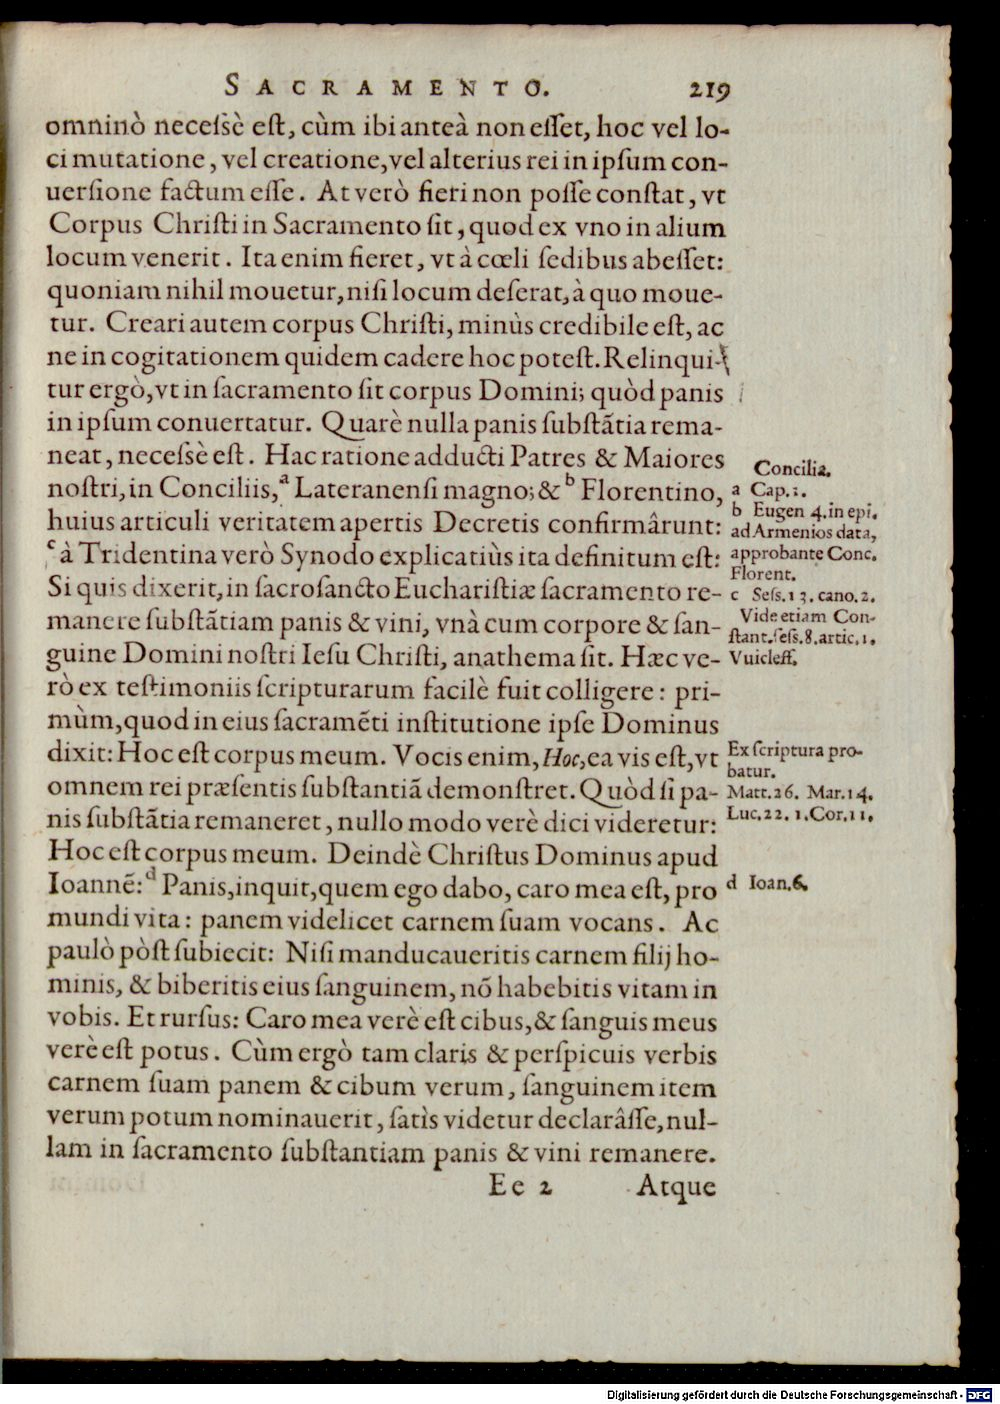 SACRAMENTO. 219
omninò necessè est, cùm ibi anteà non esset, hoc vel lo-
ci mutatione, vel creatione, vel alterius rei in ipsum con-
uersione factum esse. At verò fieri non posse constat, vt
Corpus Christi in Sacramento sit, quod ex vno in alium
locum venerit. Ita enim fieret, vt à cœli sedibus abesset:
quoniam nihil mouetur, nisi locum deserat, à quo moue-
tur. Creari autem corpus Christi, minùs credibile est, ac
ne in cogitationem quidem cadere hoc potest. Relinqui-
tur ergò, vt in sacramento sit corpus Domini; quòd panis
in ipsum conuertatur. Quarè nulla panis substãtia rema-
neat, necessè est. Hac ratione adducti Patres & Maiores
nostri, in Conciliis, a Lateranensi magno; & b Florentino,
huius articuli veritatem apertis Decretis confirmârunt:
c à Tridentina verò Synodo explicatiùs ita definitum est:
Si quis dixerit, in sacrosancto Eucharistiæ sacramento re-
manere substãtiam panis & vini, vnà cum corpore & san-
guine Domini nostri Iesu Christi, anathema sit. Hæc ve-
rò ex testimoniis scripturarum facilè fuit colligere: pri-
mùm, quod in eius sacramẽti institutione ipse Dominus
dixit: Hoc est corpus meum. Vocis enim, Hoc, ea vis est, vt
omnem rei præsentis substantiã demonstret. Quòd si pa-
nis substãtia remaneret, nullo modo verè dici videretur:
Hoc est corpus meum. Deindè Christus Dominus apud
Ioannẽ: d Panis, inquit, quem ego dabo, caro mea est, pro
mundi vita: panem videlicet carnem suam vocans. Ac
paulò pòst subiecit: Nisi manducaueritis carnem filij ho-
minis, & biberitis eius sanguinem, nõ habebitis vitam in
vobis. Et rursus: Caro mea verè est cibus, & sanguis meus
verè est potus. Cùm ergò tam claris & perspicuis verbis
carnem suam panem & cibum verum, sanguinem item
verum potum nominauerit, satìs videtur declarâsse, nul-
lam in sacramento substantiam panis & vini remanere.
Ee 2 Atque
Concilia.
a Cap. 1.
b Eugen 4. in epi.
ad Armenios data,
approbante Conc.
Florent.
c Sess. 13. cano. 2.
Vide etiam Con-
stant. sess. 8. artic. 1.
Vuicleff.
Ex scriptura pro-
batur.
Matt. 26. Mar. 14.
Luc. 22. 1. Cor. 11.
d Ioan. 6.
Digitalisierung gefördert durch die Deutsche Forschungsgemeinschaft - DFG